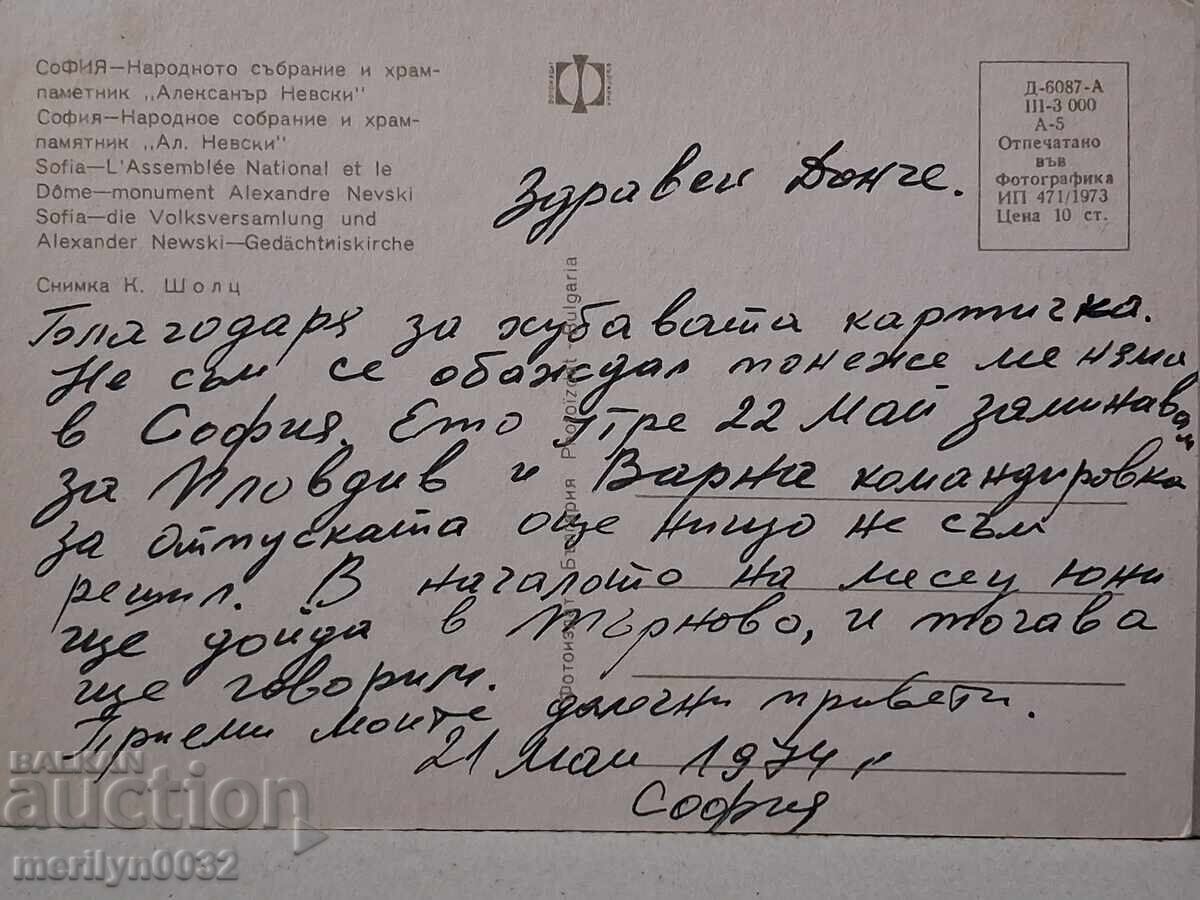 СОФИЯ—Народното събрание и храм-
паметник „Алексанър Невски"
София—Народное собрание и храм-
памятник „Ал. Невски"
Sofia—L'Assemblée National et le
Dôme—monument Alexandre Nevski
Sofia—die Volksversamlung und
Alexander Newski—Gedächtniskirche
Снимка К. Шолц
Д-6087-А
III-3 000
А-5
Отпечатано
във
Фотографика
ИП 471/1973
Цена 10 ст.
Фотоиздат България Photoizdat Bulgaria
Здравей Донче.
Благодаря за хубавата картичка.
Не съм се обаждал понеже ме няма
в София. Ето утре 22 Май заминавам
за Пловдив и Варна командировка
за отпуската още нищо не съм
решил. В началото на месец юни
ще дойда в Търново, и тогава
ще говорим.
Приеми моите далечни привети.
21 Май 1974 г.
София
BALKAN
auction
merilyn0032